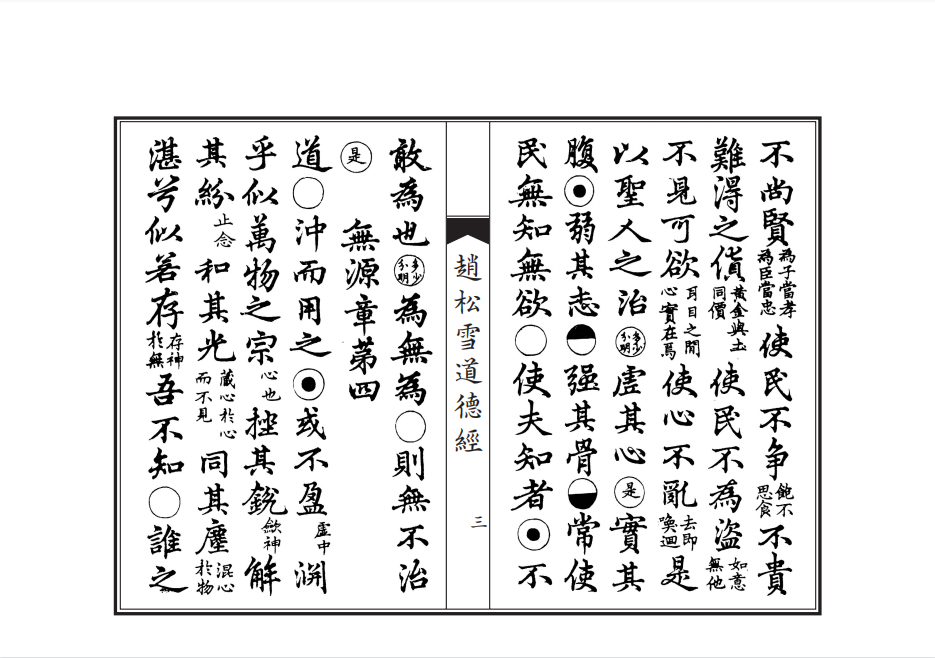 不尚賢為子當孝為臣當忠使民不争飽不思食不貴
難淂之貨黃金與土同價使民不為盗如意無他
不見可欲耳目之閒心實在焉使心不亂去即喚迴是
以聖人之治多少分明虛其心是實其
腹弱其志强其骨常使
民無知無欲使夫知者不
趙松雪道德經
三
敢為也多少分明為無為則無不治
是
無源章第四
道沖而用之或不盈虛中淵
乎似萬物之宗心也挫其銳歛神解
其紛止念和其光藏心於心而不見同其塵混心於物
湛兮似若存存神於無吾不知誰之